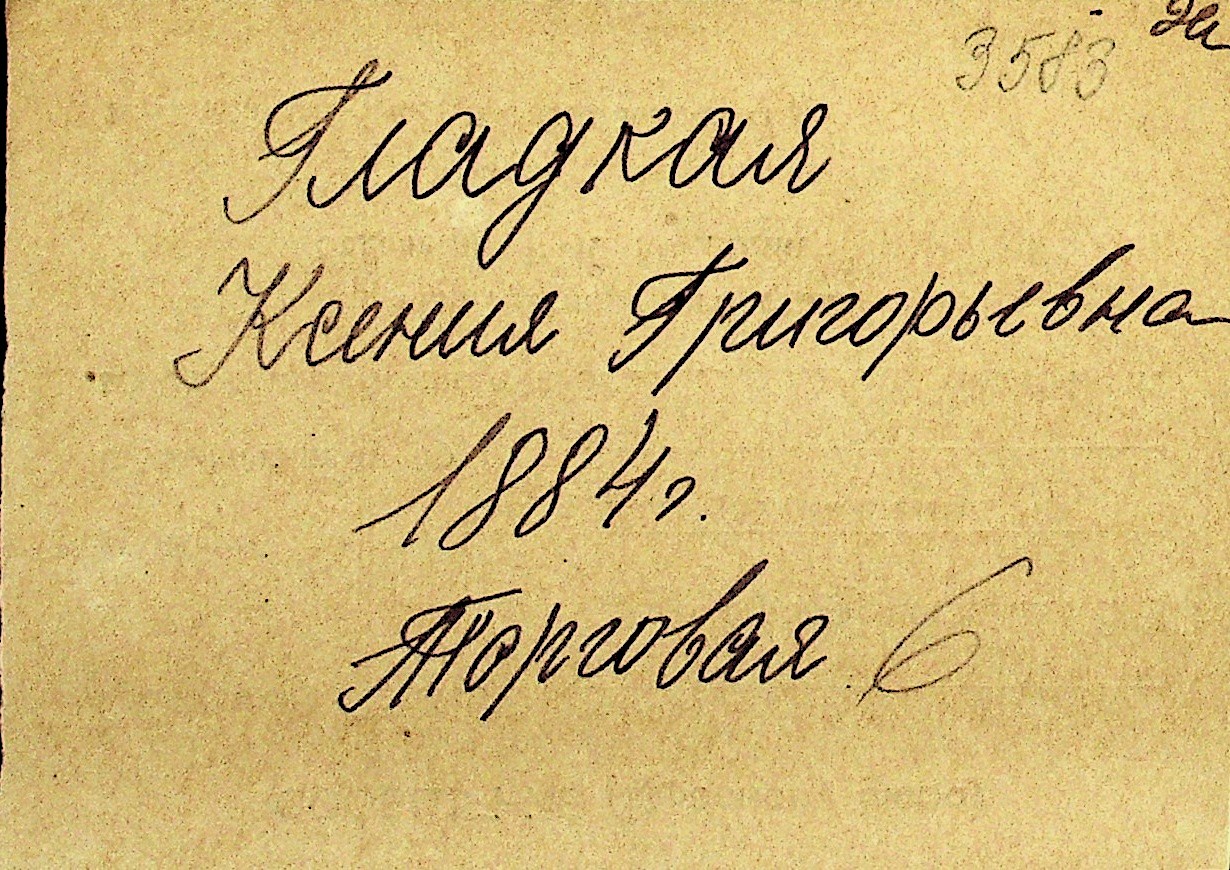 3583
Гладкая
Ксения Григорьевна
1884 г.
Торговая 6